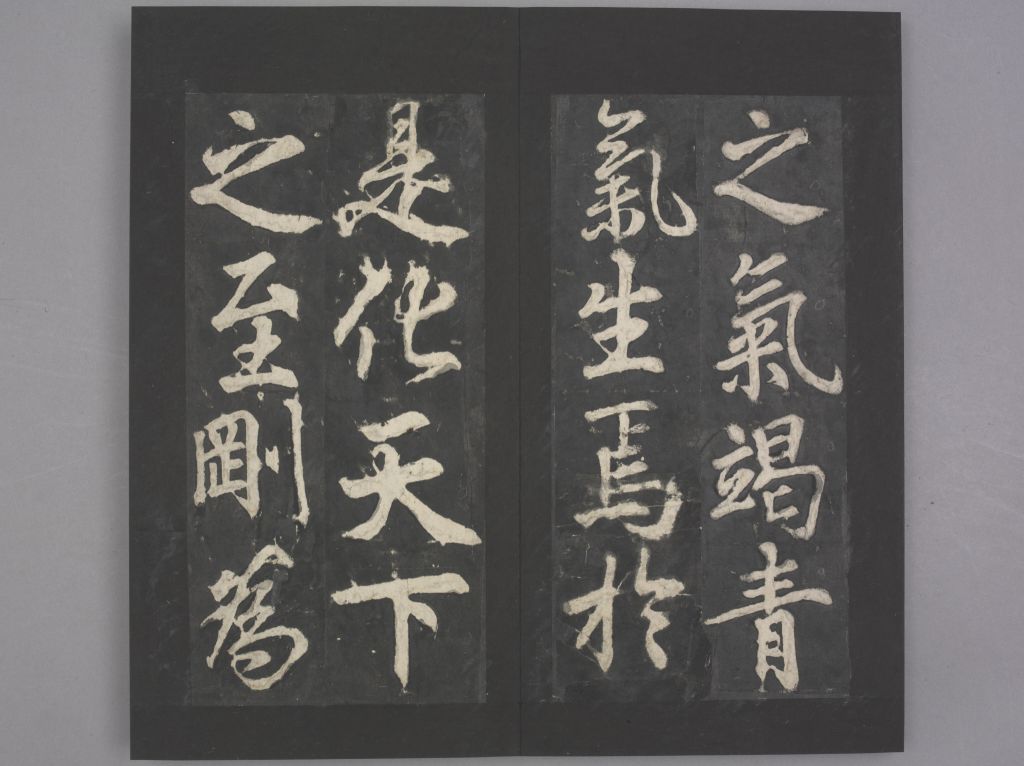 之氣竭青
氣生焉於
是化天下
之至剛為